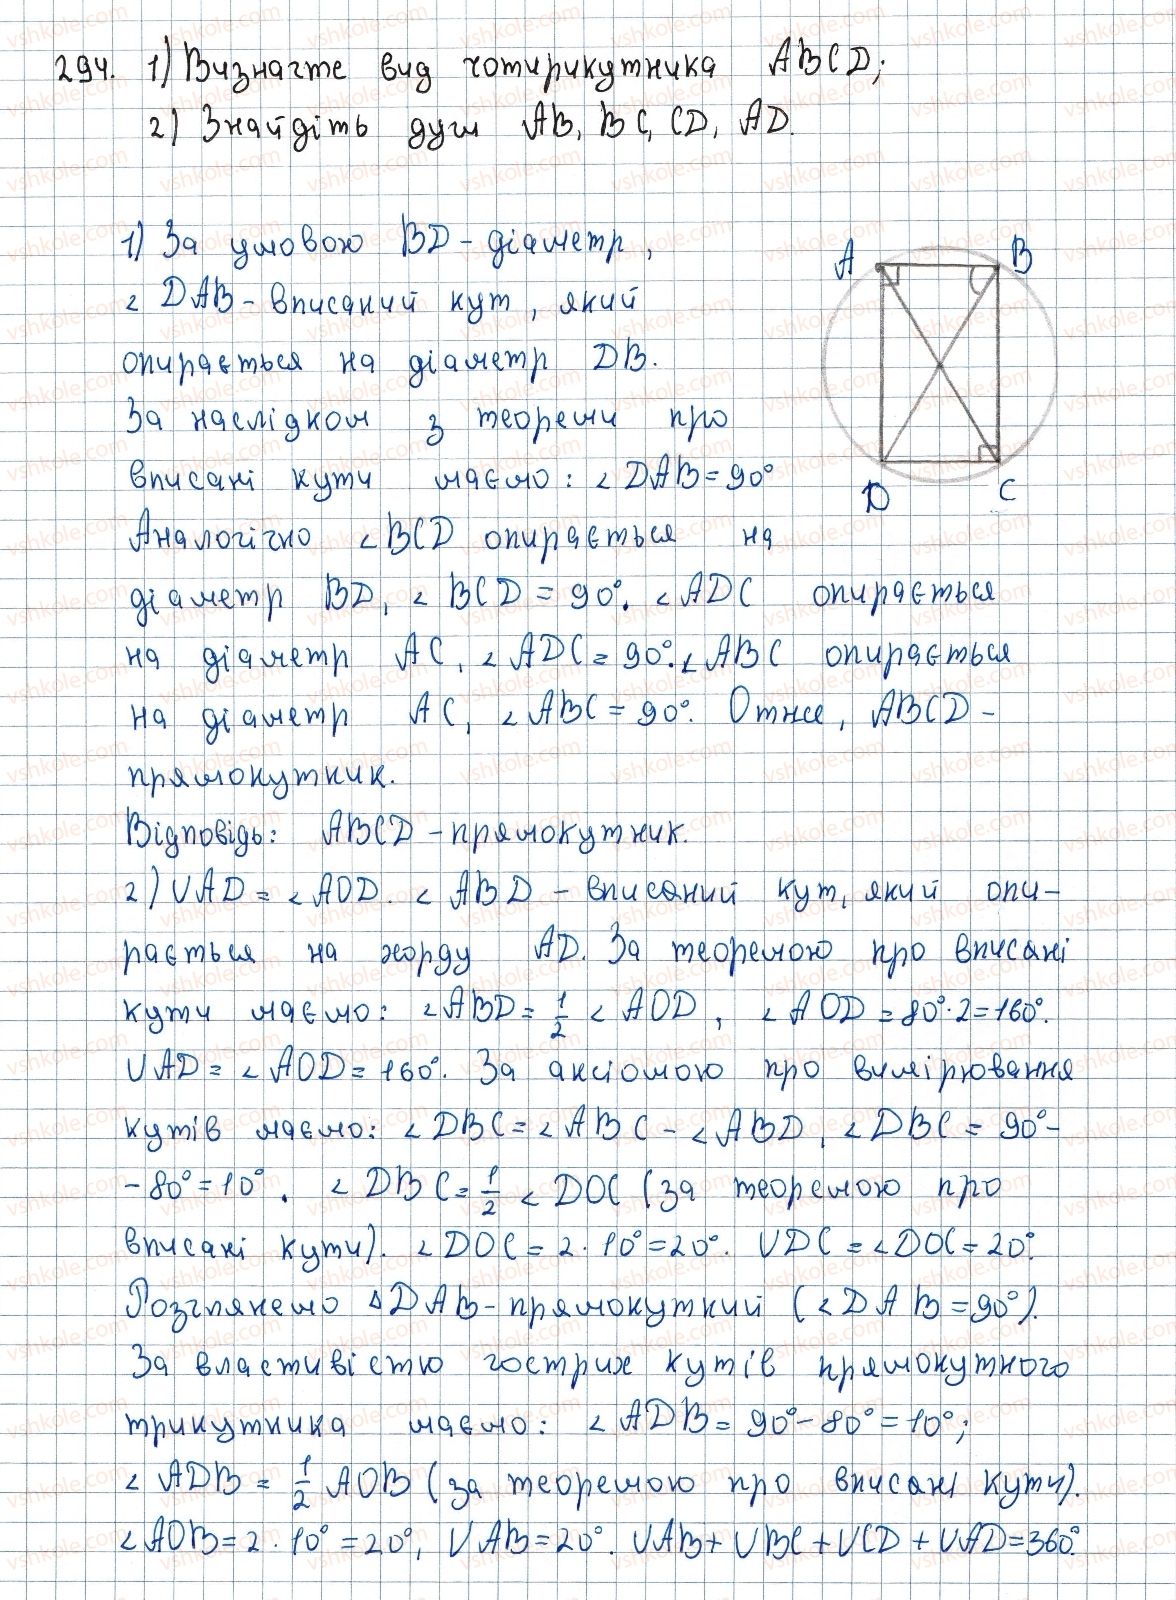 294. 1) Визначте вид чотирикутника ABCD;
2) Знайдіть дуги AB, BC, CD, AD.
1) За умовою BD - діаметр,
∠ DAB - вписаний кут, який
опирається на діаметр DB.
За наслідком з теореми про
вписані кути маємо: ∠ DAB = 90°
Аналогічно ∠ BCD опирається на
діаметр BD, ∠ BCD = 90°. ∠ ADC опирається
на діаметр AC, ∠ ADC = 90°. ∠ ABC опирається
на діаметр AC, ∠ ABC = 90°. Отже, ABCD -
прямокутник.
Відповідь: ABCD - прямокутник.
2) ∪AD = ∠ AOD. ∠ ABD - вписаний кут, який опи-
рається на хорду AD. За теоремою про вписані
кути маємо: ∠ ABD = 1/2 ∠ AOD, ∠ AOD = 80° · 2 = 160°.
∪AD = ∠ AOD = 160°. За аксіомою про вимірювання
кутів маємо: ∠ DBC = ∠ ABC - ∠ ABD, ∠ DBC = 90° -
- 80° = 10°. ∠ DBC = 1/2 ∠ DOC (за теоремою про
вписані кути). ∠ DOC = 2 · 10° = 20°. ∪DC = ∠ DOC = 20°.
Розглянемо ∆ DAB - прямокутний (∠ DAB = 90°).
За властивістю гострих кутів прямокутного
трикутника маємо: ∠ ADB = 90° - 80° = 10°;
∠ ADB = 1/2 AOB (за теоремою про вписані кути).
∠ AOB = 2 · 10° = 20°, ∪AB = 20°. ∪AB + ∪BC + ∪CD + ∪AD = 360°.
A
B
D
C